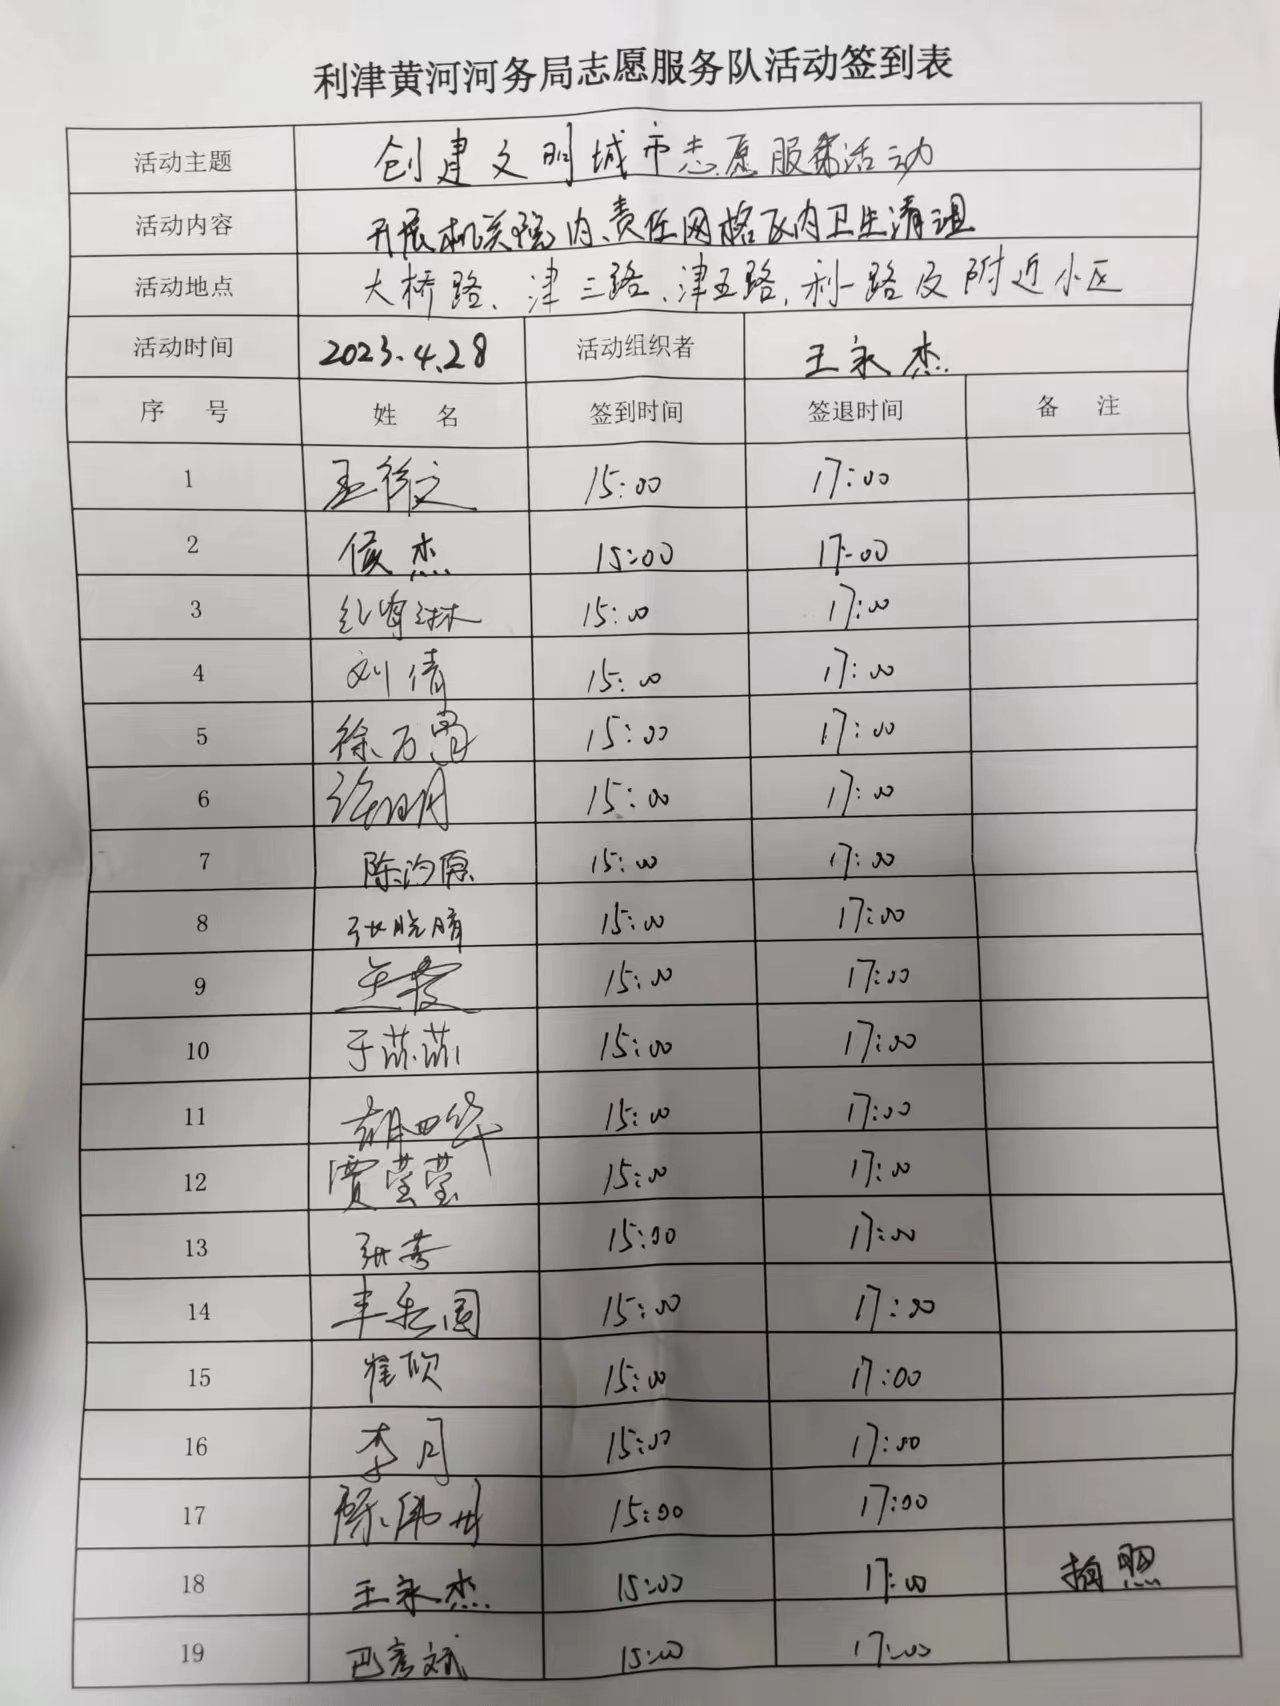 利津黄河河务局志愿服务队活动签到表
活动主题 创建文明城市志愿服务活动
活动内容 开展机关院内、责任网格区内卫生清理
活动地点 大桥路、津三路、津五路、利一路及附近小区
活动时间 2023.4.28 活动组织者 王永杰
序号 姓名 签到时间 签退时间 备注
1 15:00 17:00
2 侯杰 15:00 17:00
3 15:00 17:00
4 刘倩 15:00 17:00
5 徐万 15:00 17:00
6 15:00 17:00
7 陈 15:00 17:00
8 张晓腈 15:00 17:00
9 15:00 17:00
10 于茹茹 15:00 17:00
11 胡 15:00 17:00
12 贾莹莹 15:00 17:00
13 张 15:00 17:00
14 15:00 17:00
15 崔欣 15:00 17:00
16 李月 15:00 17:00
17 15:00 17:00
18 王永杰 15:00 17:00 拍照
19 巴彦斌 15:00 17:00